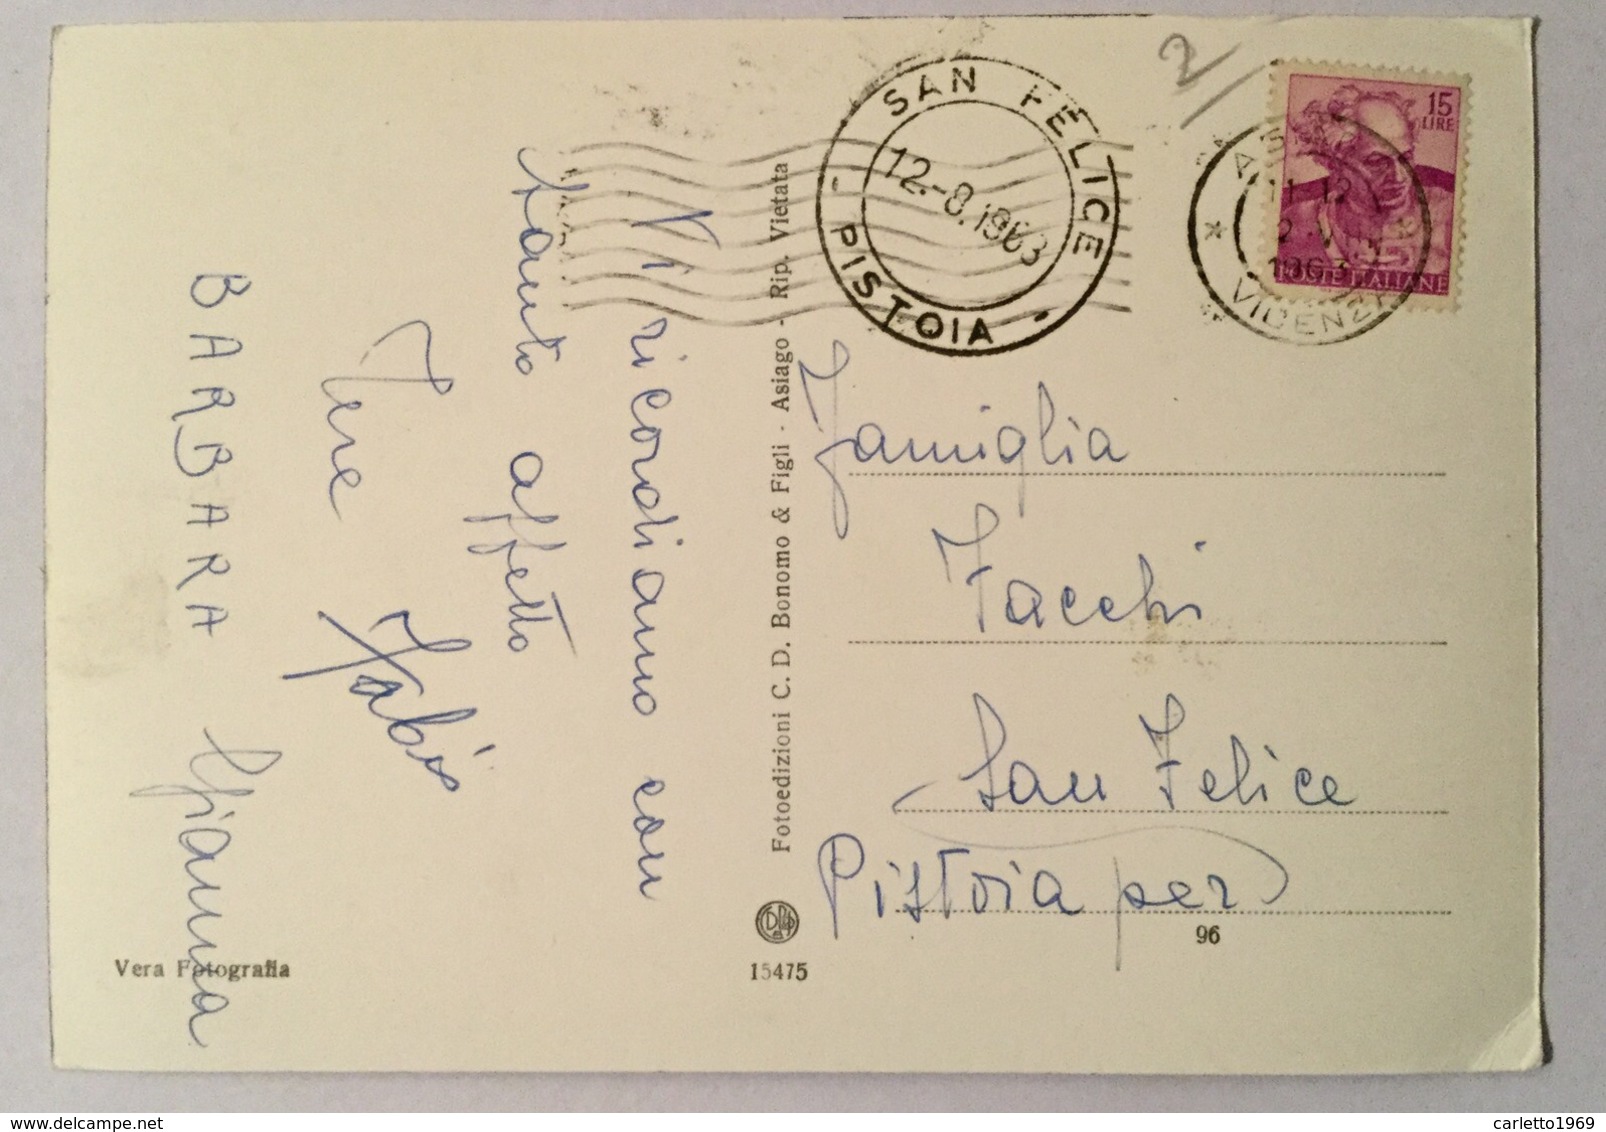 Vi ricordiamo con
tanto affetto
Fabio
BARBARA Gianna
Vera Fotografia
Fotoedizioni C. D. Bonomo & Figli - Asiago - Rip. Vietata
15475
SAN FELICE
12.-8.1963
- PISTOIA -
2
15
LIRE
POSTE ITALIANE
11-12
1963
VICENZA
Famiglia
Facchi
San Felice
Pistoia per
96
carletto1969